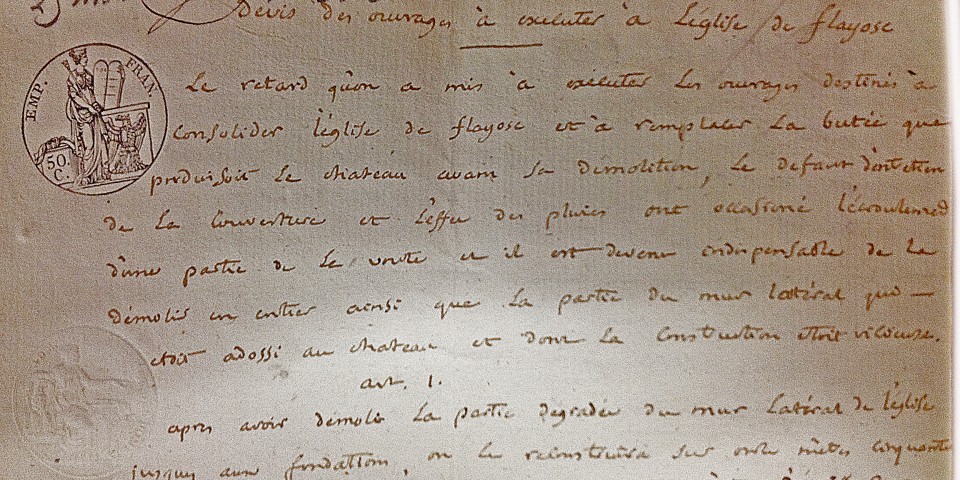 Devis des ouvrages à exécuter à L'église de flayosc
EMP. FRAN
50. C.
Le retard qu'on a mis à exécuter les ouvrages destinés à
consolider l'église de flayosc et à remplacer la butée que
produisoit le chateau avant sa démolition, le défaut d'entretien
de la couverture et l'effet des pluies ont occasioné l'écroulement
d'une partie de la voute et il est devenu indispensable de la
démolir en entier ainsi que la partie du mur latéral qui —
etoit adossé au chateau et dont la construction etoit vicieuse.
art. 1.
apres avoir démoli la partie degradée du mur latéral de l'église
jusques aux fondations, on le reconstruira sur onze mètres cinquante